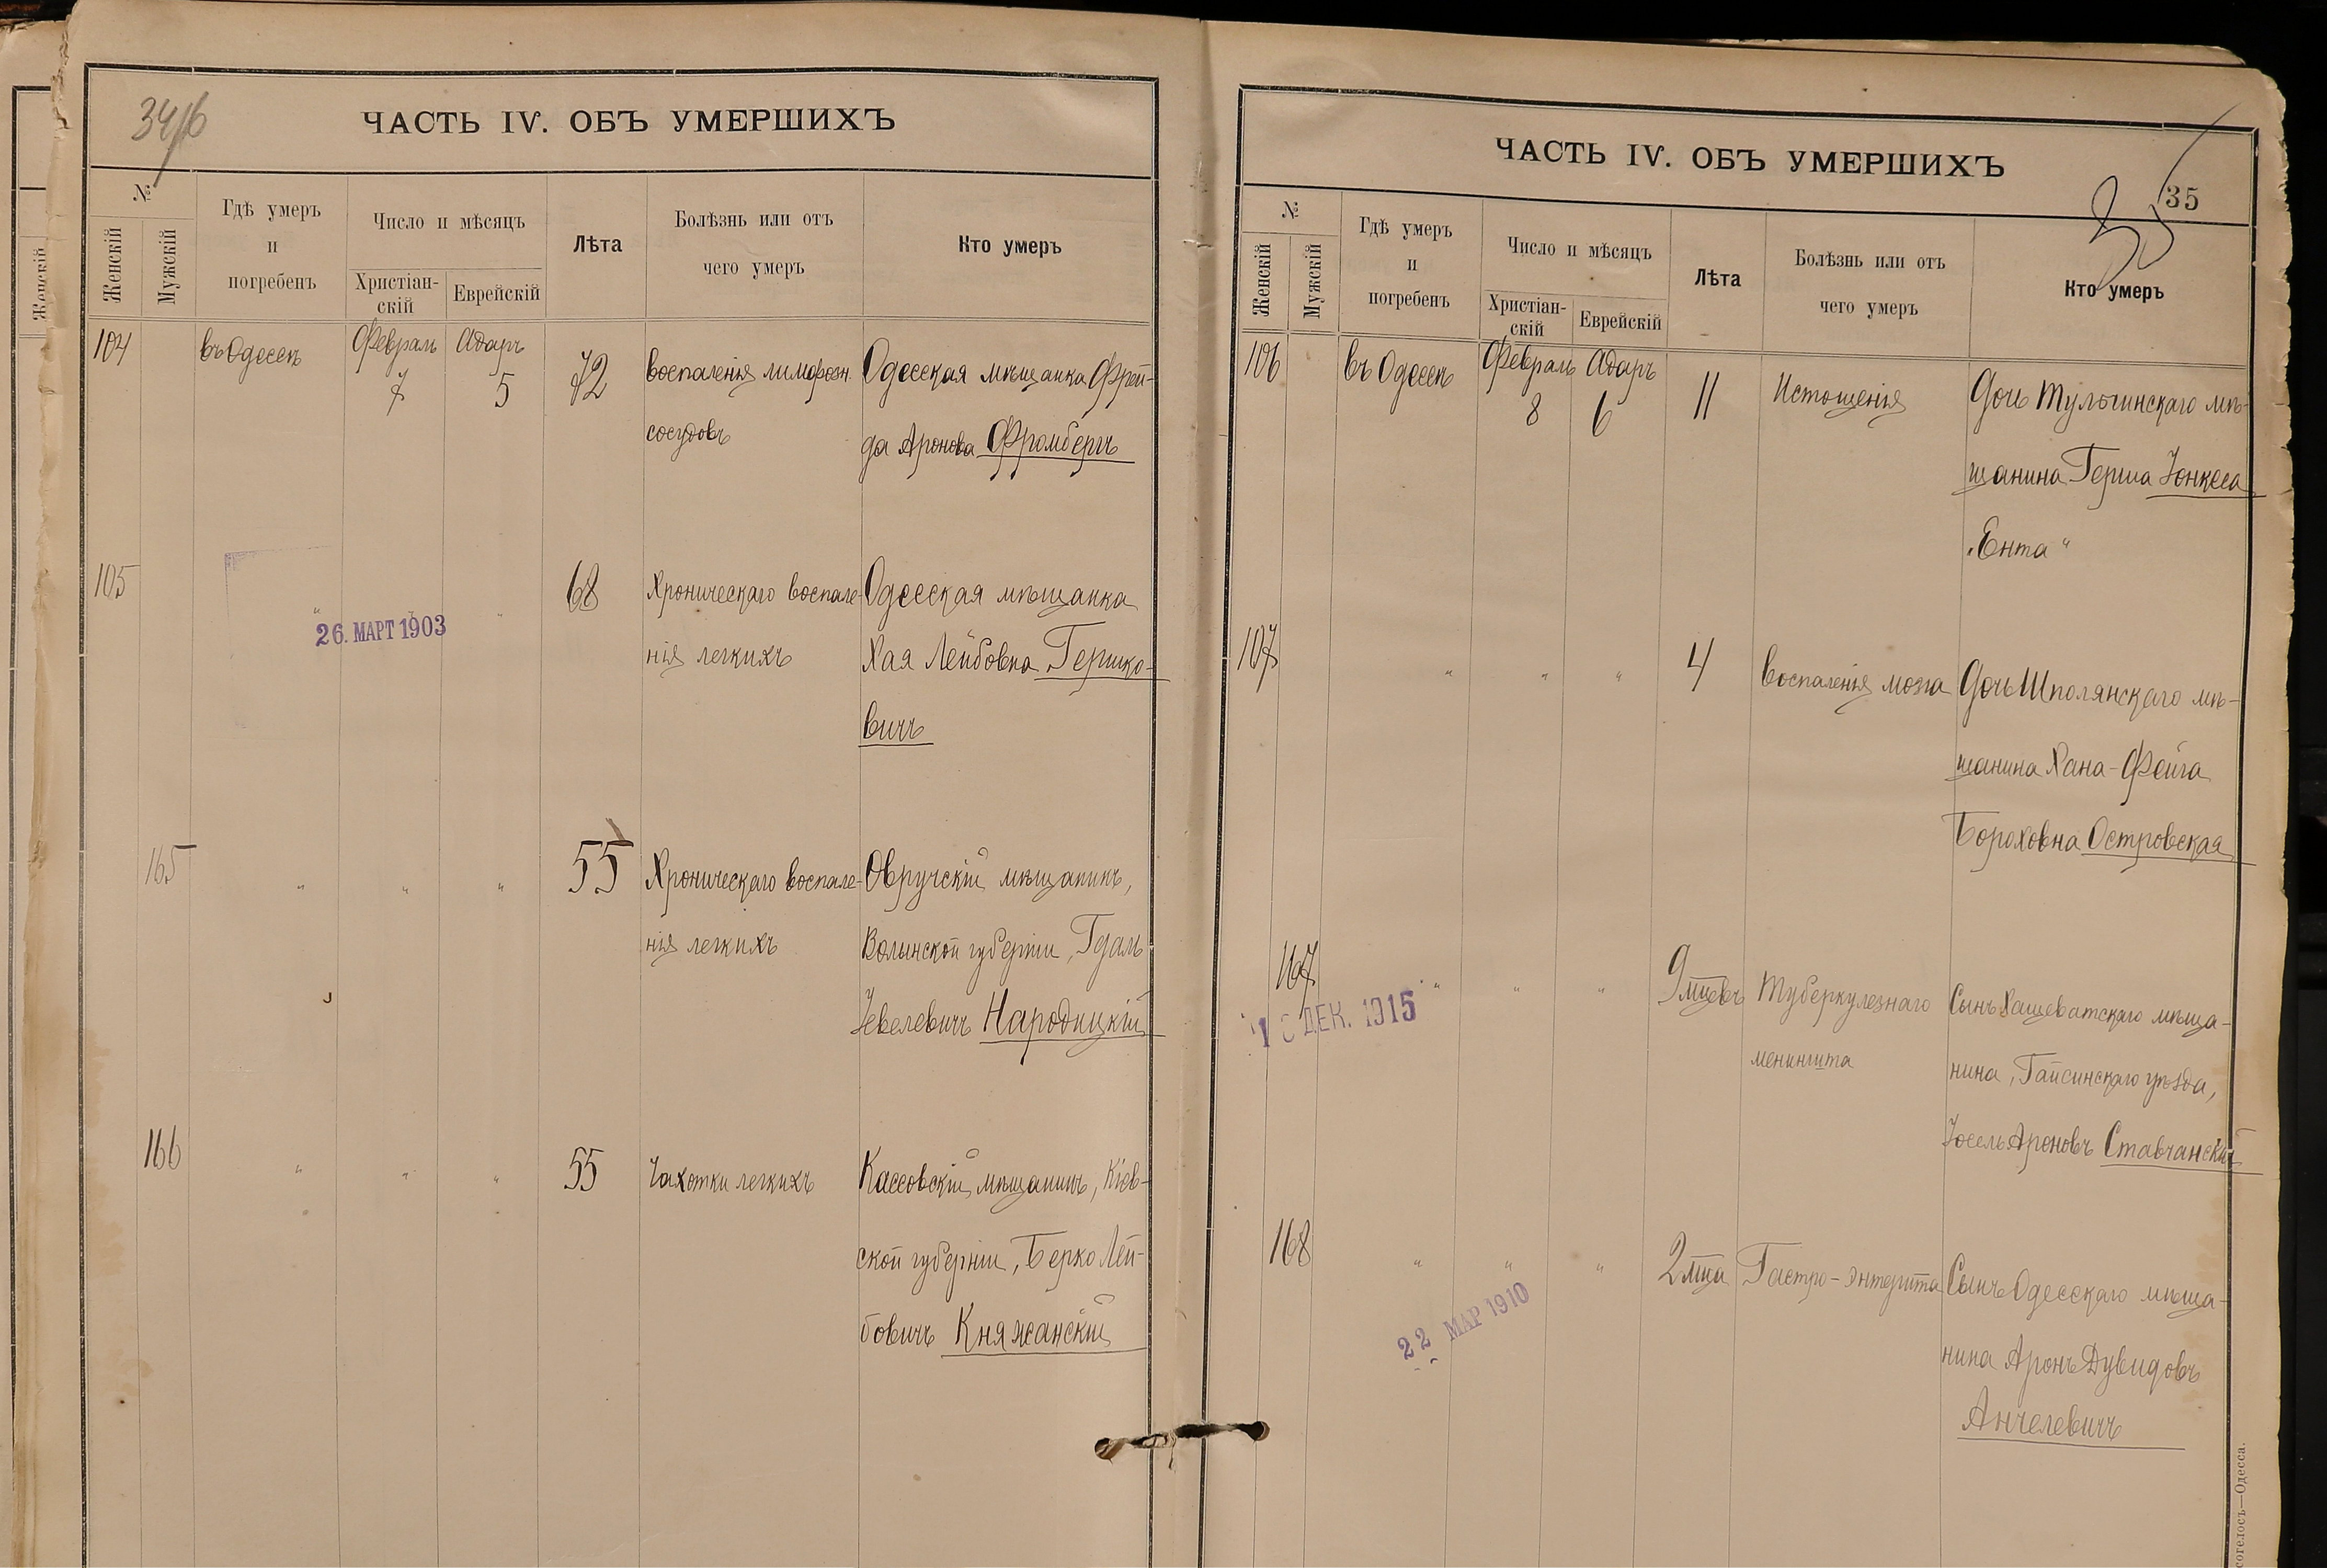 34/б
ЧАСТЬ IV. ОБЪ УМЕРШИХЪ
№
Женскій
Мужскій
Гдѣ умеръ
и
погребенъ
Число и мѣсяцъ
Христіан-
скій
Еврейскій
Лѣта
Болѣзнь или отъ
чего умеръ
Кто умеръ
104 въ Одессѣ Февраль Адаръ 72 воспаленія лимфозн. Одесская мѣщанка Фрей-
7 5 сосудовъ да Аронова Фромбергъ
105 " " " 68 Хроническаго воспале- Одесская мѣщанка
26. МАРТ 1903
нія легкихъ Хая Лейбовна Гершко-
вичъ
165 " " " 55 Хроническаго воспале- Овручскій мѣщанинъ,
нія легкихъ Волынской губерніи, Гдаль
Іевелевичъ Народицкій
166 " " " 55 Чахотки легкихъ Кассовскій мѣщанинъ, Кіев-
ской губерніи, Берко Лей-
бовичъ Княжанскій
ЧАСТЬ IV. ОБЪ УМЕРШИХЪ
35
35
№
Женскій
Мужскій
Гдѣ умеръ
и
погребенъ
Число и мѣсяцъ
Христіан-
скій
Еврейскій
Лѣта
Болѣзнь или отъ
чего умеръ
Кто умеръ
106 въ Одессѣ Февраль Адаръ 11 Истощенія Дочь Тульчинскаго мѣ-
8 6
щанина Герша Іонкеса
„Ента“
107 " " " 4 воспаленія мозга Дочь Шполянскаго мѣ-
щанина Хана-Фейга
Бороховна Островская
167 " " " 9 мцевъ Туберкулезнаго Сынъ Хащеватскаго мѣща-
ДЕК. 1915
менингита нина, Гайсинскаго уѣзда,
Іосель Ароновъ Ставчанскій
168 " " " 2 мца Гастро-энтерита Сынъ Одесскаго мѣща-
22 МАР 1910
нина Аронъ Дувидовъ
Анчелевичъ
Одесса.
Женскій